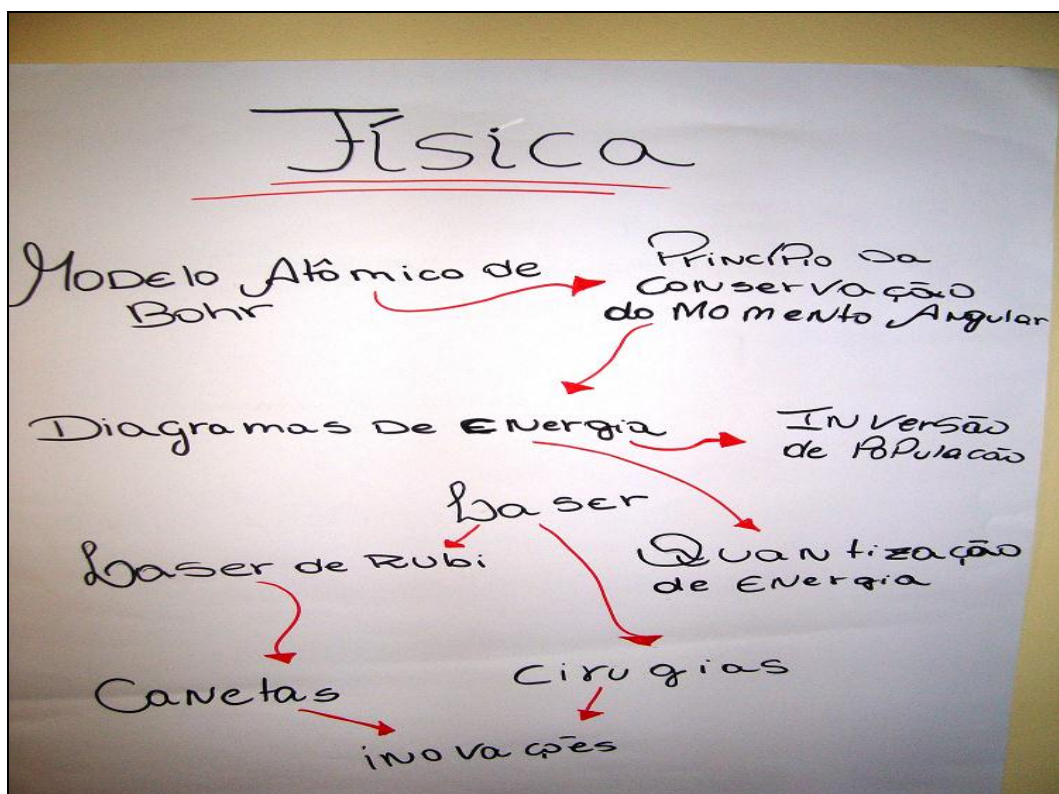 Física
Modelo Atômico de
Bohr
Princípio da
Conservação
do Momento Angular
Diagramas de Energia
Inversão
de População
Laser
Laser de Rubi
Quantização
de Energia
Canetas
Cirugias
inovações